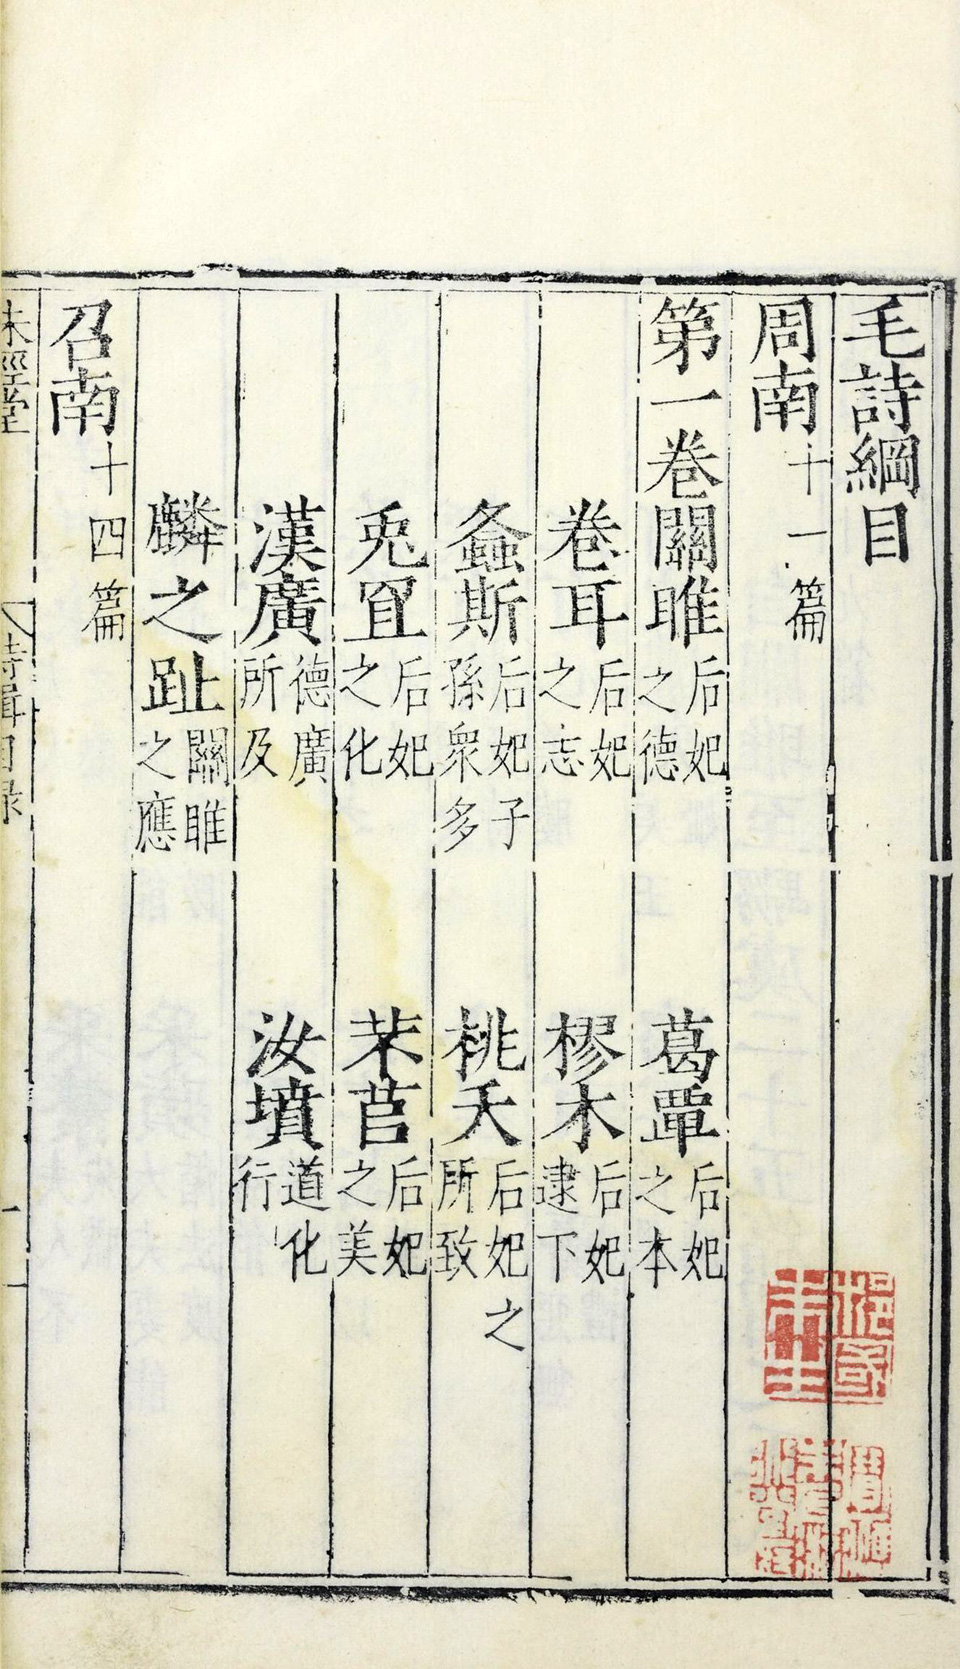 毛詩綱目
周南十一篇
第一卷關雎后妃之德 葛覃后妃之本
卷耳后妃之志 樛木后妃逮下
螽斯后妃子孫衆多 桃夭后妃之所致
兎罝后妃之化 芣苢后妃之美
漢廣德廣所及 汝墳道化行
麟之趾關雎之應
召南十四篇
味經堂 詩緝目錄 一